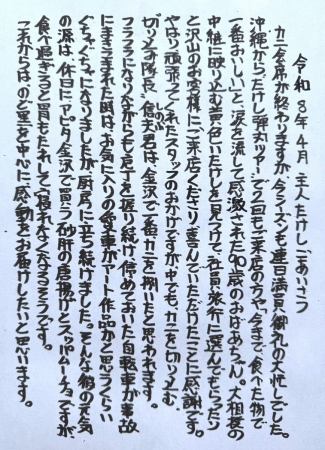 令和8年4月 主人たけしごあいさつ
カニ会席が終わりますが、今シーズンも連日満員御礼の大忙しでした。
沖縄から、たけし弾丸ツアーで2回もご来店の方や、今まで食べた物で
一番おいしいと、涙を流して感激された90歳のおばあちゃん。大相撲の
中継に映り込む黄色いたけしを見つけて、社員旅行に選んでもらったり
と沢山のお客様にご来店くださり、喜んでいただけたことに感謝です。
やはり頑張ってくれたスタッフのおかげですが、中でも、カニを切り込む
切り込み隊長、信夫君は、金沢で一番カニを捌いたと思われます。
しのぶ
フラフラになりながらも包丁を握り続け、停めておいた自転車が事故
にまきこまれた時は、お気に入りの愛車がアート作品かと思うぐらい
ぐちゃぐちゃになりましたが、厨房に立ち続けました。そんな彼の元気
の源は、休日にアピタ金沢で買う砂肝の唐揚げとスッパムーチョですが、
食べ過ぎると胃もたれして寝れなくなるそうです。
これからはのど黒を中心に感動をお届けしたいと思います。